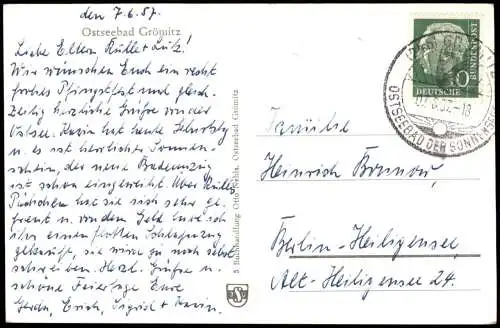 den 7.6.57.
Ostseebad Grömitz
Liebe Eltern Rülle + Lutz!
Wir wünschen Euch ein recht
frohes Pfingstfest und gleich-
zeitig herzliche Grüße von der
Ostsee. Karin hat heute Geburtstag
u. es ist herrlicher Sonnen-
schein, der neue Badeanzug
ist schon eingeweiht. Über Rülls
Püppchen hat sie sich sehr ge-
freut u. von dem Geld habe ich
ihr einen flotten Schlafanzug
gekauft, sie wird ja noch selbst
schreiben. Herzl. Grüße u.
schöne Feiertage Eure
Gerda, Erich, Sigrid + Karin.
S. Buchhandlung Otto Ostseebad Grömitz
DEUTSCHE BUNDESPOST
10
OSTSEEBAD DER SONNENSEITE
Familie
Heinrich
Berlin-Heiligensee,
Alt-Heiligensee 24.